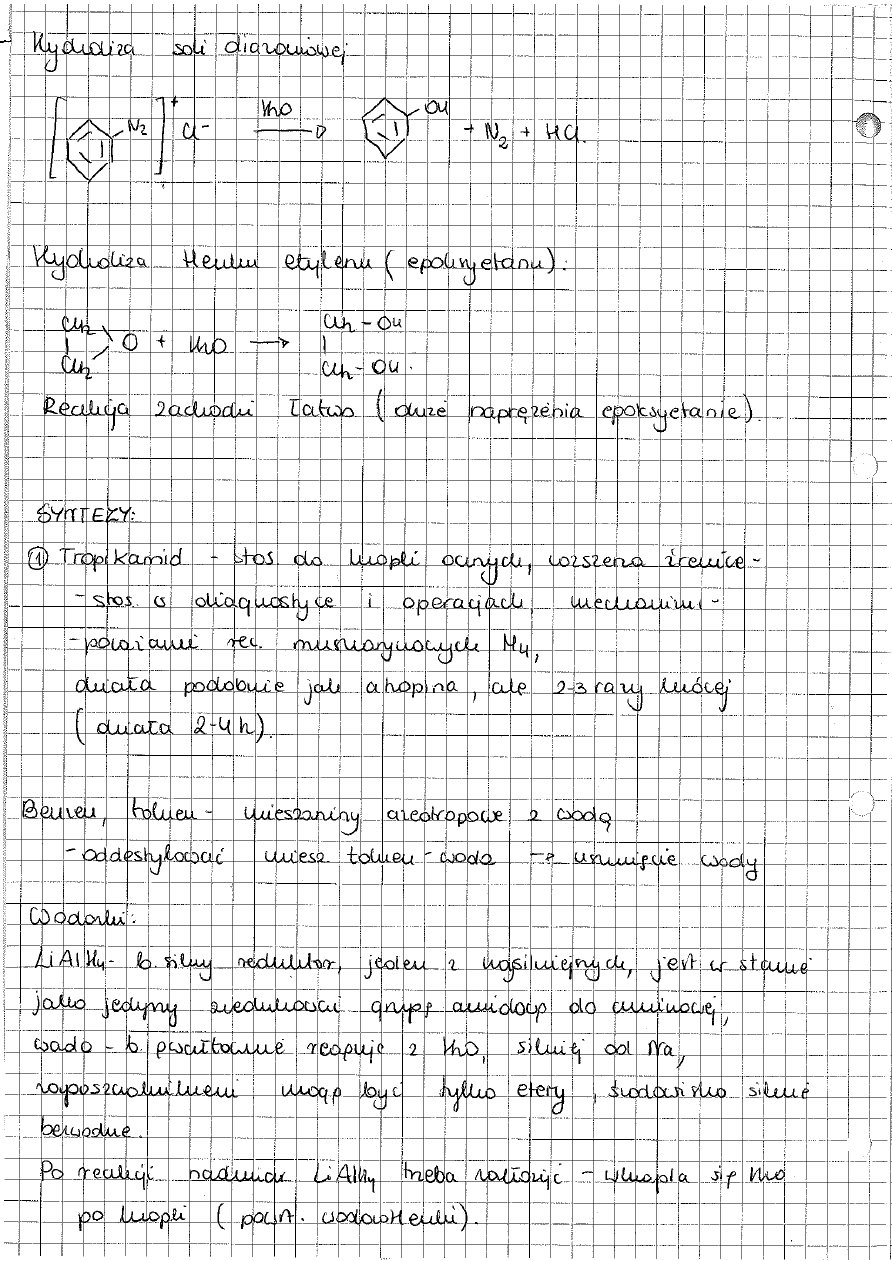 Hydroliza soli diazoniowej
[ N2 ]+ Cl- H2O → OH + N2 + HCl.
Hydroliza tlenku etylenu (epoksyetanu):
CH2 CH2 - OH
| O + H2O → |
CH2 CH2 - OH.
Reakcja zachodzi łatwo (duże naprężenia epoksyetanie).
SYNTEZY:
① Tropikamid - stos do kropli ocznych, rozszerza źrenice -
- stos w diagnostyce i operacjach, mechanizm -
- porażanie rec. muskarynowych M4,
działa podobnie jak atropina, ale 2-3 razy krócej
(działa 2-4 h).
Benzen, toluen - mieszaniny azeotropowe z wodą
- oddestylować miesz toluen - woda → usunięcie wody
Wodorki:
LiAlH4 - b. silny reduktor, jeden z najsilniejnych, jest w stanie
jako jedyny zredukować grupę amidową do aminowej,
wada - b. gwałtownie reaguje z H2O, silniej od Na,
rozpuszczalnikiem mogą być tylko etery, środowisko silnie
bezwodne.
Po reakcji nadmiar LiAlH4 trzeba rozłożyć - wkrapla się H2O
po kropli (powst. wodorotlenki).